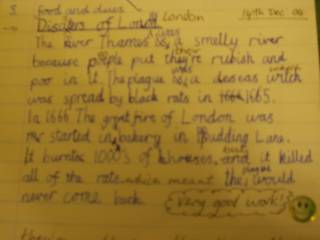 3. food and dines
Disasters of London London
The River Thames was a smelly river
because people put their rubish and
poo in it. The plague was a deseas witch
was spread by black rats in 1665.
In 1666 The great fire of London was
started in bakery in Pudding Lane.
It burnt 1000's of houses, but it killed
all of the rats which meant the plague would
never come back. Very good work!